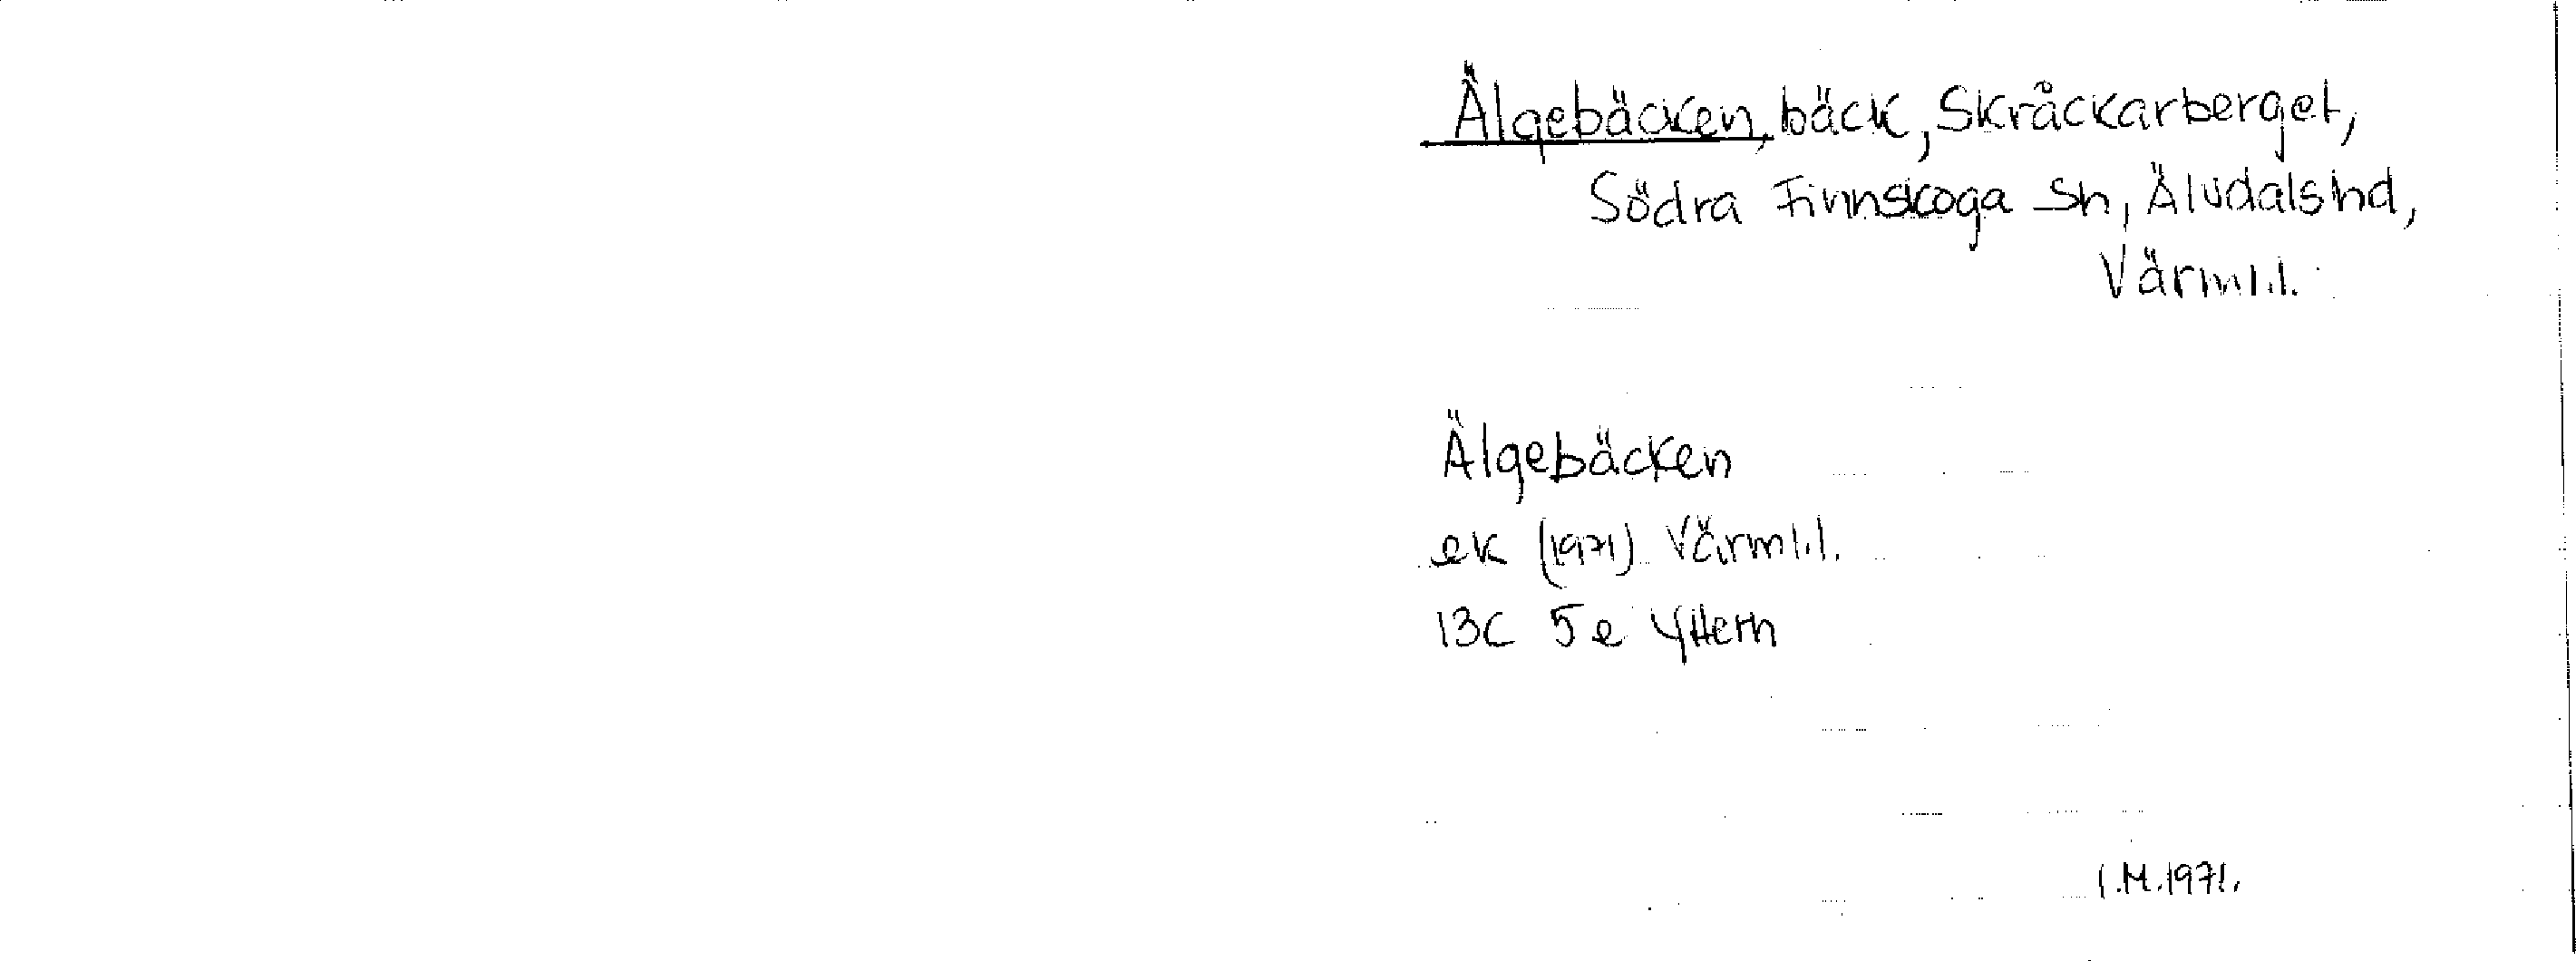 Älgebäcken, bäck, Skråckarberget,
Södra Finnskoga sn, Älvdalshd,
Värml.l.
Älgebäcken
ek (1971) Värml.l.
13C 5e Yttern
I.M.1971.